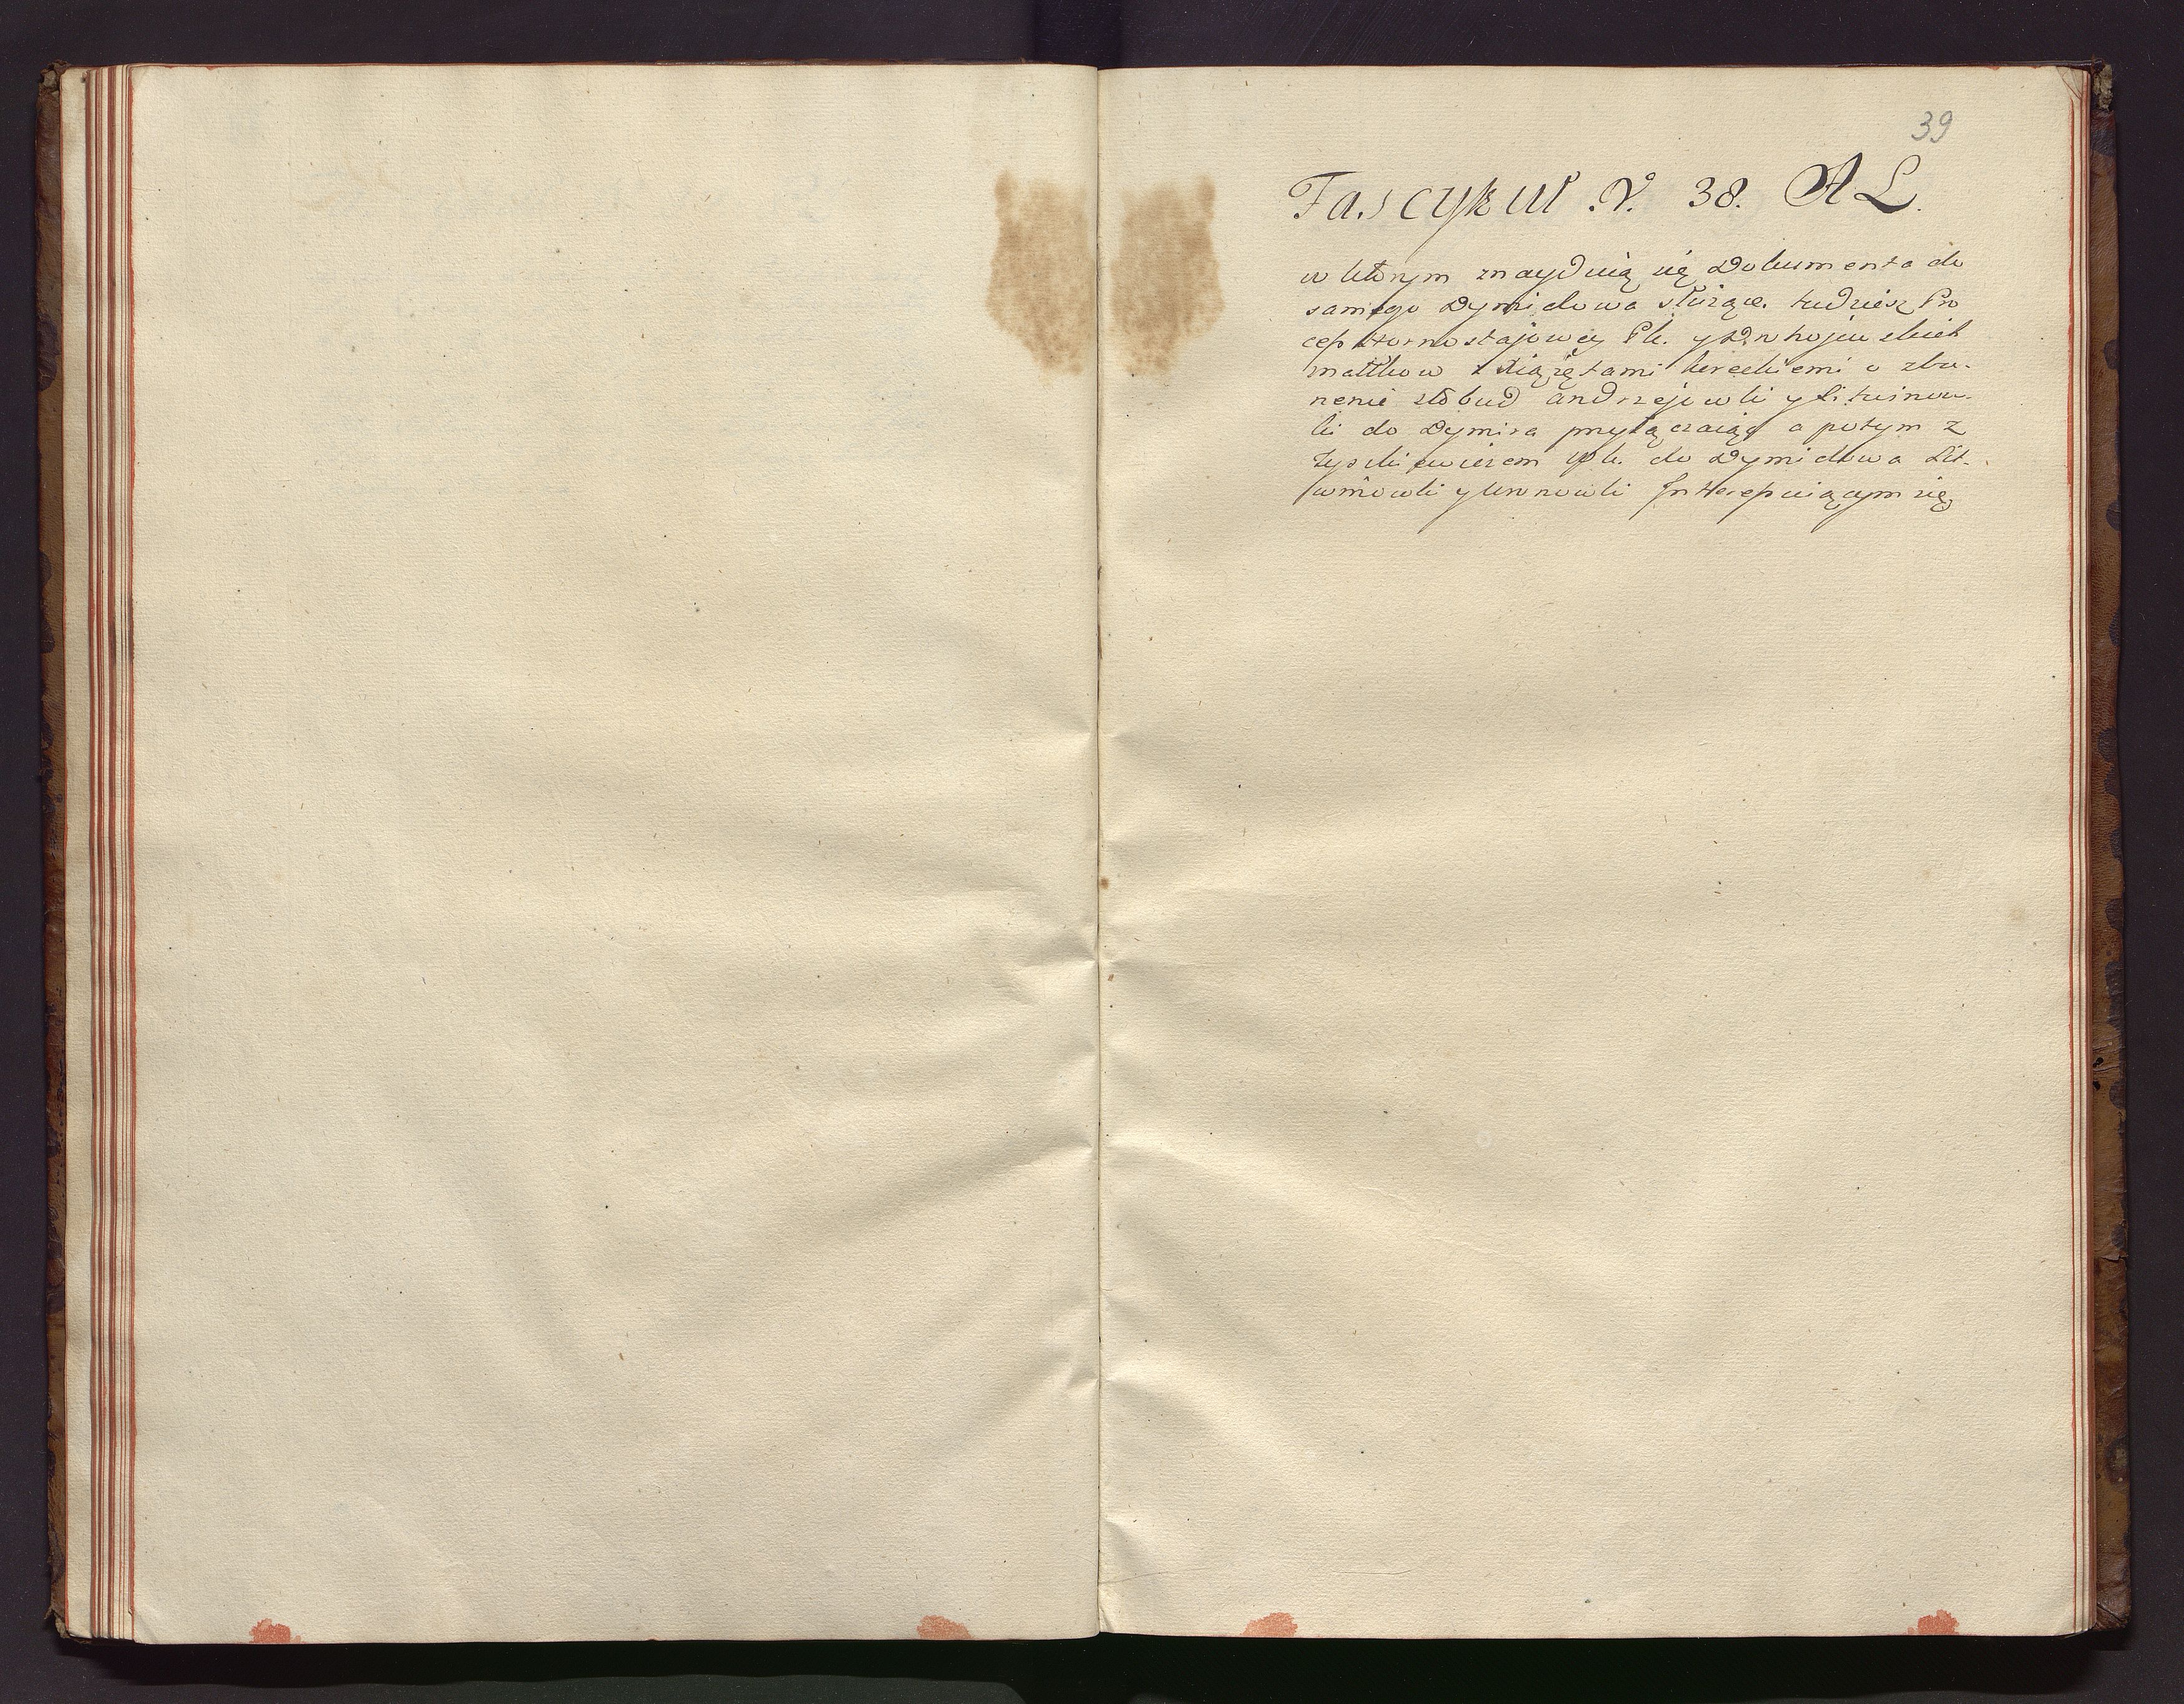 39
Fascykuł N. 38. AL.
w ktorym znayduią się Dokumenta do
samego Dymidowa służące. tudziesz Pro
ces Hornostajowey Pk.
małkow z Xiążętami koreckiemi o zbu-
nenie słobud andrzejowki y Litwinow-
ki do Dymira przyłączaiąc a potym z
Tyszkiewiczem do Dymidowa Lit-
winowki y